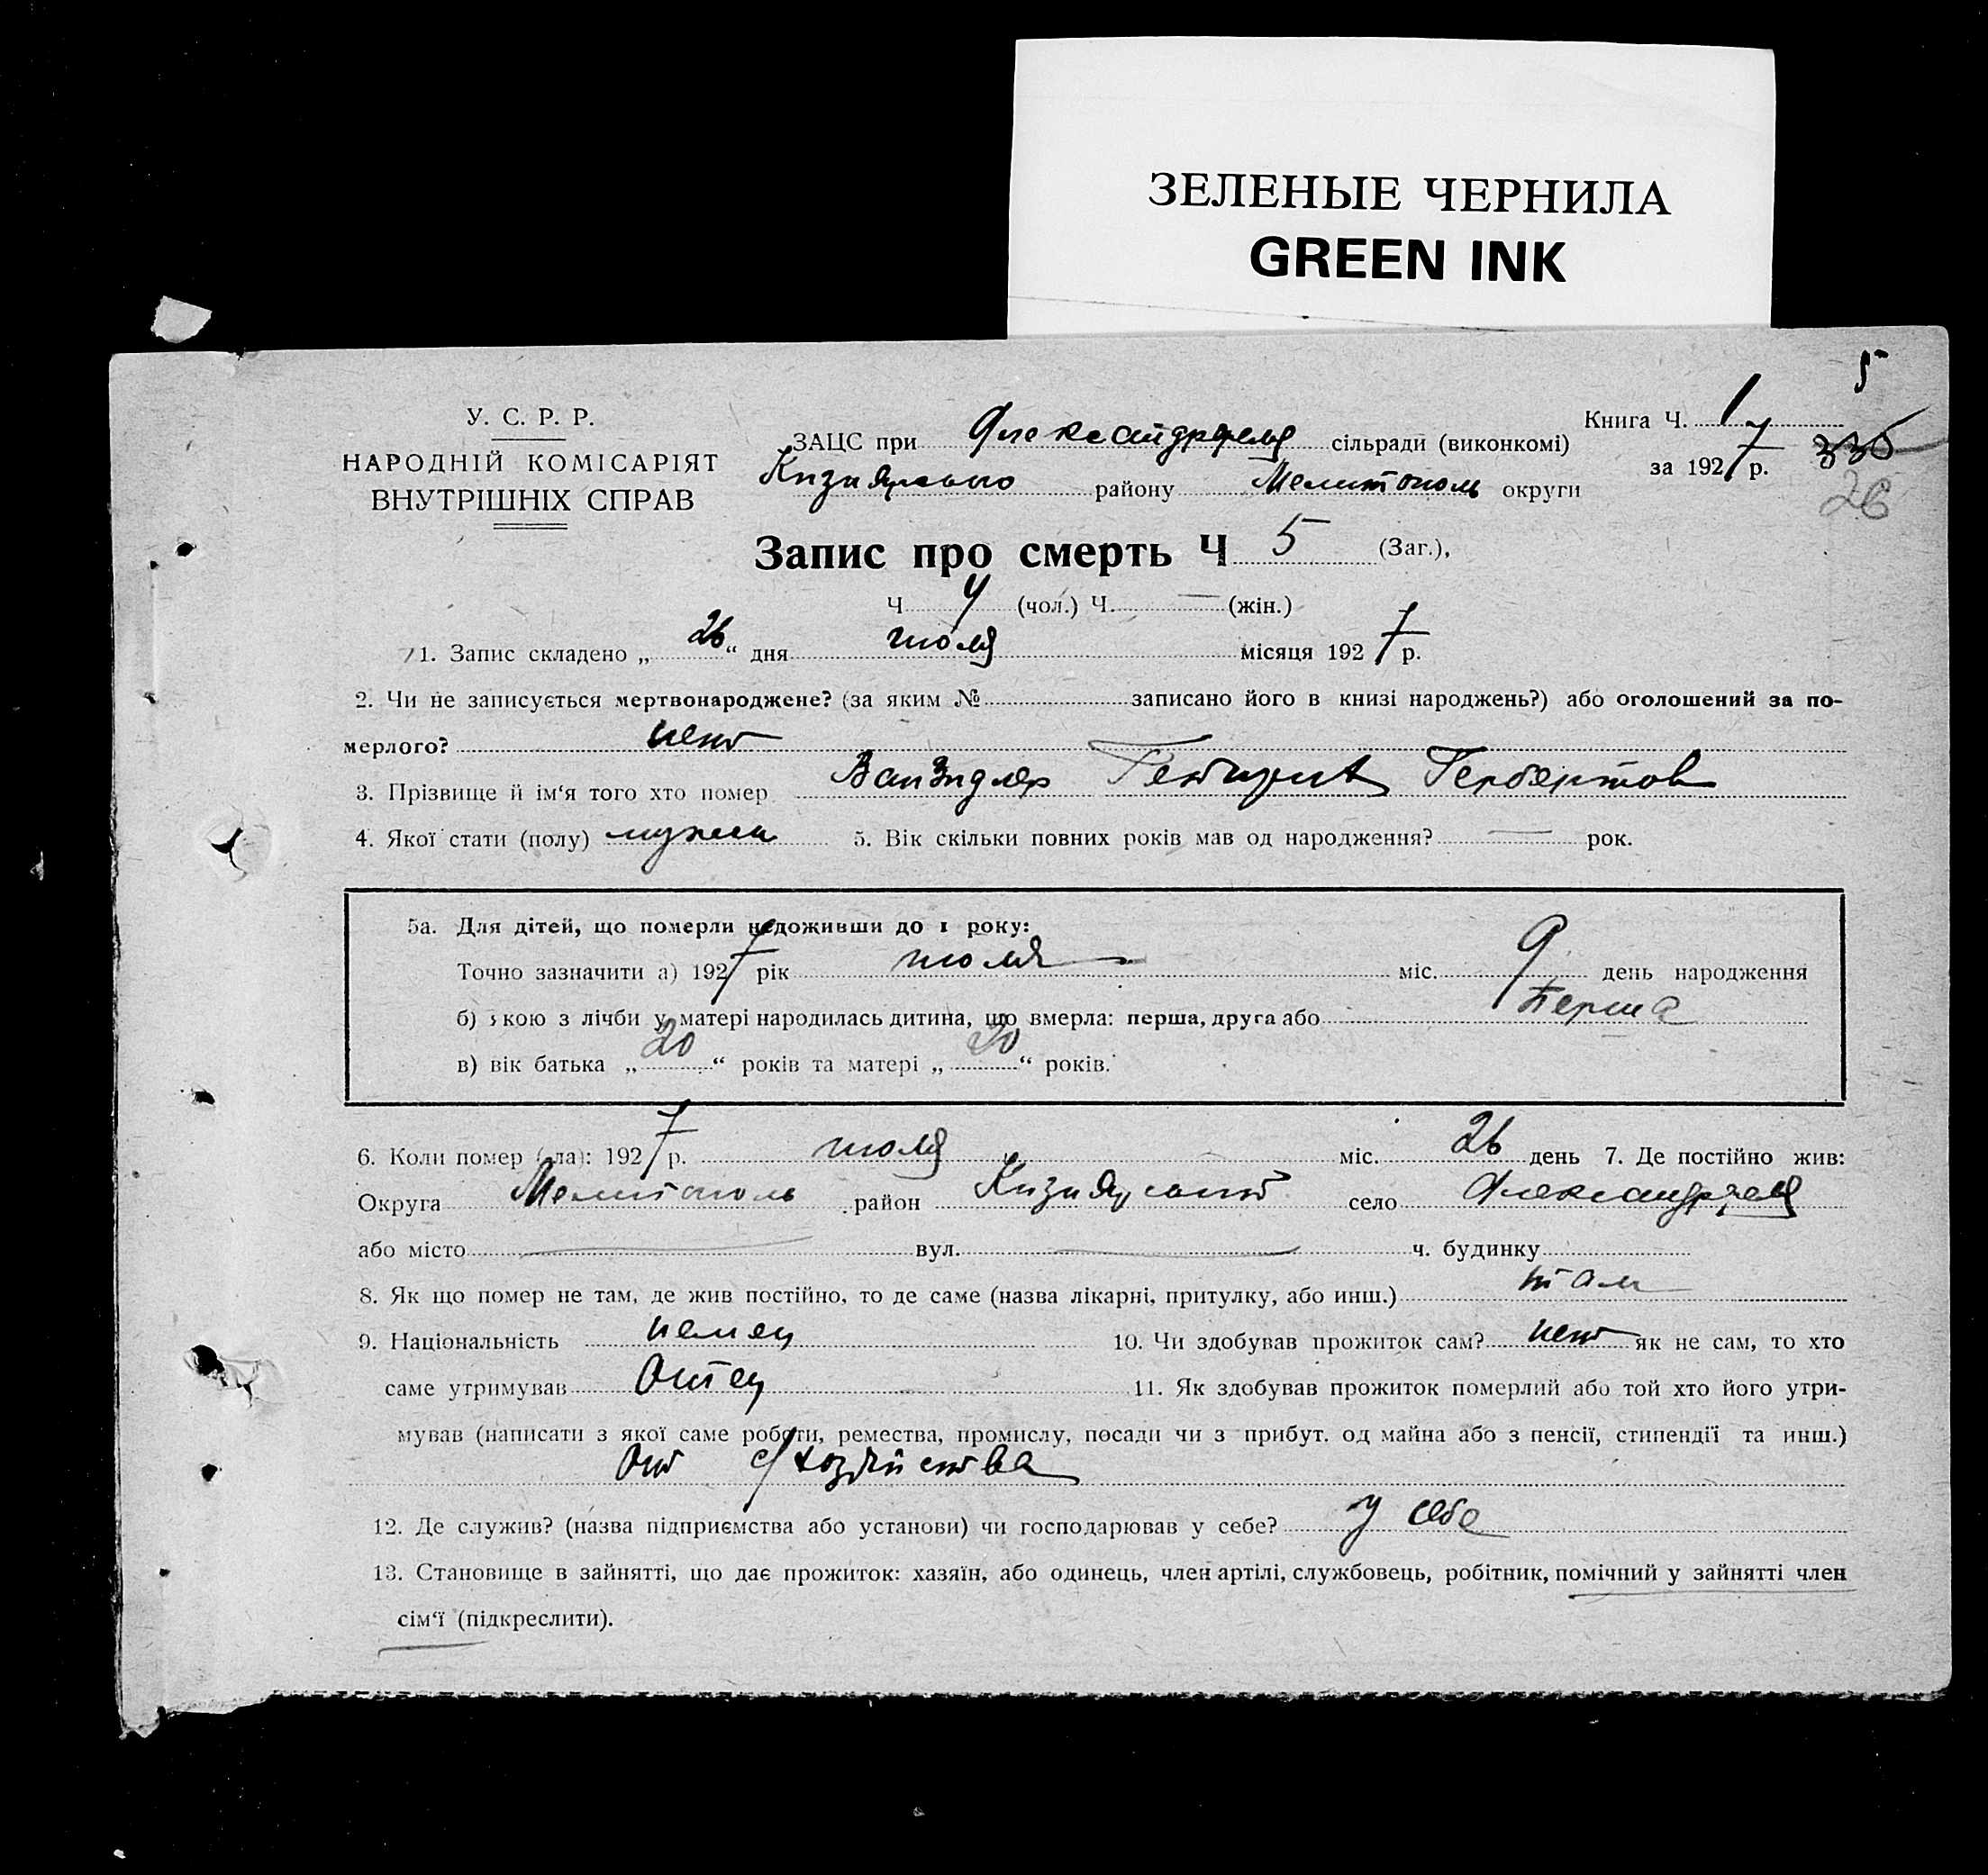 ЗЕЛЕНЫЕ ЧЕРНИЛА
GREEN INK
5
У. С. Р. Р.
НАРОДНІЙ КОМІСАРІЯТ
ВНУТРІШНІХ СПРАВ
ЗАЦС при Александрфельд сільради (виконкомі)
Кизиярського району Мелитополь округи
Книга Ч. 1
за 1927 р. 335
26
Запис про смерть Ч 5 (Заг.),
Ч 4 (чол.) Ч. — (жін.)
1. Запис складено „26“ дня июля місяця 1927 р.
2. Чи не записується мертвонароджене? (за яким № записано його в книзі народжень?) або оголошений за по-
мерлого? нет
3. Прізвище й ім‘я того хто помер Гербертов
4. Якої стати (полу) мужск 5. Вік скільки повних років мав од народження? — рок.
5а. Для дітей, що померли недоживши до 1 року:
Точно зазначити а) 1927 рік июля міс. 9 день народження
б) якою з лічби у матері народилась дитина, що вмерла: перша, друга або Перша
в) вік батька „20“ років та матері „20“ років.
6. Коли помер (ла): 1927 р. июля міс. 26 день 7. Де постійно жив:
Округа Мелитополь район Кизиярский село Александрфельд
або місто — вул. — ч. будинку
8. Як що помер не там, де жив постійно, то де саме (назва лікарні, притулку, або инш.) там
9. Національність немец 10. Чи здобував прожиток сам? нет як не сам, то хто
саме утримував Отец 11. Як здобував прожиток померлий або той хто його утри-
мував (написати з якої саме роботи, ремества, промислу, посади чи з прибут. од майна або з пенсії, стипендії та инш.)
От с/хозяйства
12. Де служив? (назва підприємства або установи) чи господарював у себе? у себе
13. Становище в зайнятті, що дає прожиток: хазяїн, або одинець, член артілі, службовець, робітник, помічний у зайнятті член
сім‘ї (підкреслити).